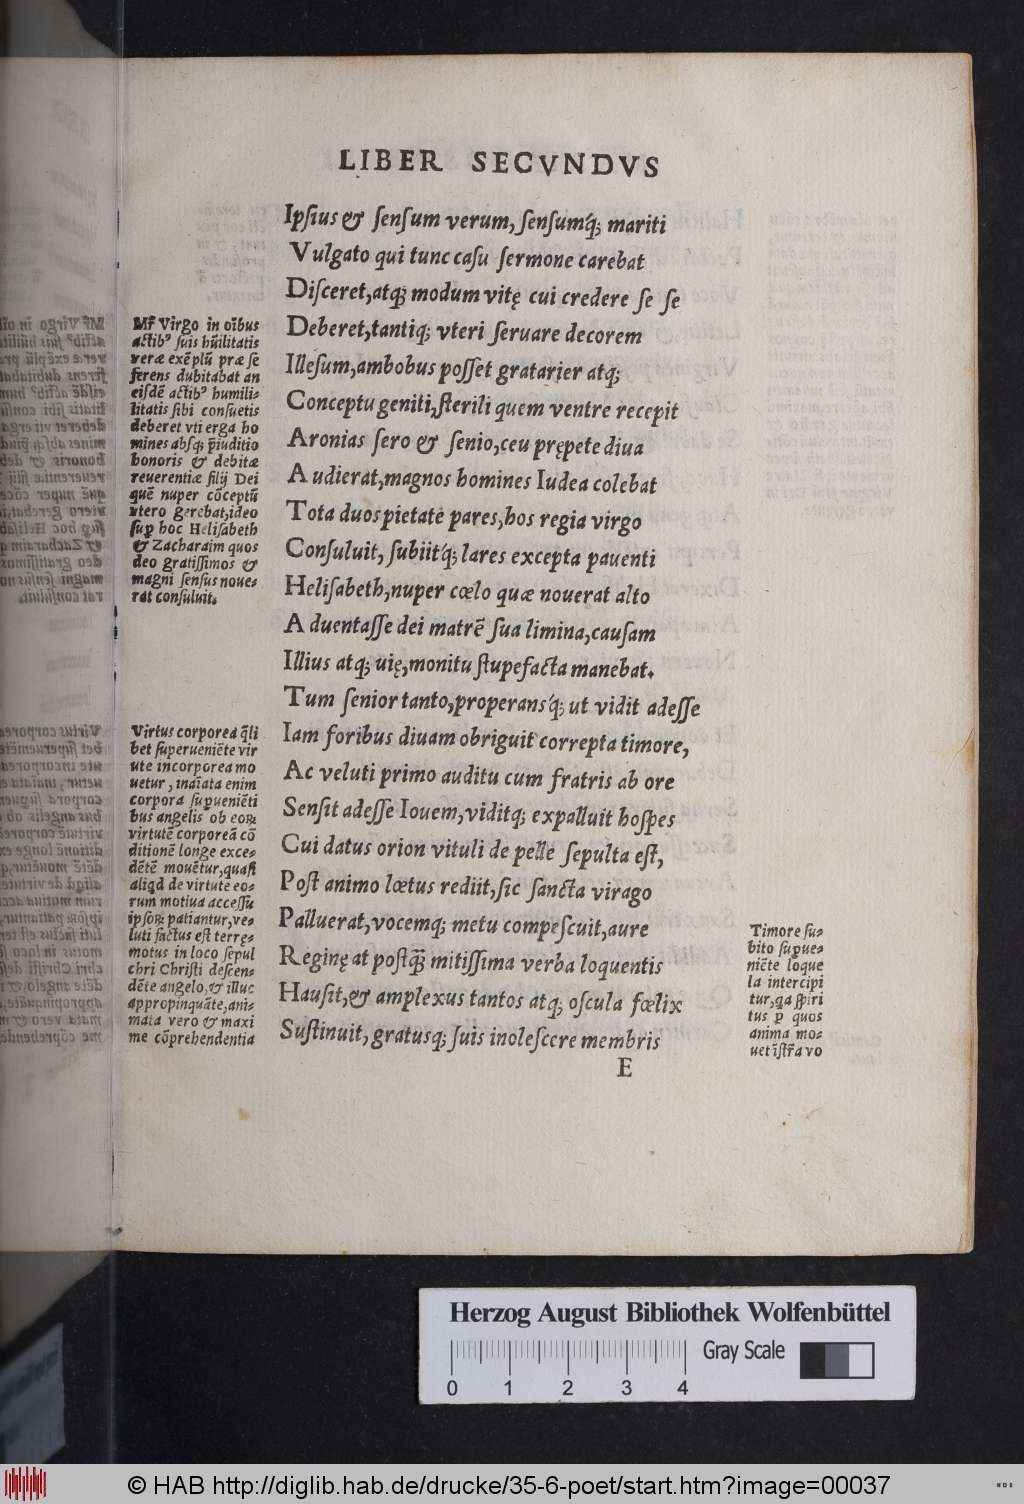 LIBER SECVNDVS
Ipſius & ſenſum verum, ſenſumq́; mariti
Vulgato qui tunc caſu ſermone carebat
Diſceret, atq; modum vitę cui credere ſe ſe
Deberet, tantiq; vteri ſeruare decorem
Illeſum, ambobus poſſet gratarier atq;
Conceptu geniti, ſterili quem ventre recepit
Aronias ſero & ſenio, ceu prępete diua
Audierat, magnos homines Iudea colebat
Tota duos pietate pares, hos regia virgo
Conſuluit, ſubiitq́; lares excepta pauenti
Heliſabeth, nuper cœlo quæ nouerat alto
Aduentaſſe dei matrē ſua limina, cauſam
Illius atq; uię, monitu ſtupefacta manebat.
Tum ſenior tanto, properansq́; ut vidit adeſſe
Iam foribus diuam obriguit correpta timore,
Ac veluti primo auditu cum fratris ab ore
Senſit adeſſe Iouem, viditq; expalluit hoſpes
Cui datus orion vituli de pelle ſepulta eſt,
Poſt animo lœtus rediit, ſic ſancta virago
Palluerat, vocemq; metu compeſcuit, aure
Reginę at poſtq̄; mitiſſima verba loquentis
Hauſit, & amplexus tantos atq; oſcula fœlix
Suſtinuit, gratusq; ſuis inoleſcere membris
E
Mr̄ Virgo in oībus
actibꝰ ſuis hūilitatis
veræ exēplū præ ſe
ferens dubitabat an
eiſdē actibꝰ humili-
litatis ſibi conſuetis
deberet vti erga ho
mines abſq; p̄iuditio
honoris & debitæ
reuerentiæ filij Dei
quē nuper cōceptū
vtero gerebat, ideo
ſuꝑ hoc Heliſabeth
& Zacharaim quos
deo gratiſſimos &
magni ſenſus noue-
rat conſuluit.
Virtus corporea q̄li
bet ſuperueniēte vir
ute incorporea mo
uetur, inaīata enim
corpora ſuꝑueniēti
bus angelis ob eoꝝ
virtutē corporeā cō
ditionē longe exce-
dētē mouētur, quaſi
aliqd de virtute eo-
rum motiua acceſſu
ipſoꝝ patiantur, ve-
luti factus eſt terrę-
motus in loco ſepul
chri Chriſti deſcen-
dēte angelo, & illuc
appropinquāte, ani-
mata vero & maxi
me cōprehendentia
Timore ſu-
bito ſuꝑue-
niēte loque
la intercipi
tur, qa ſp̄iri
tus ꝑ quos
anima mo-
uet īſtr̄a vo
Herzog August Bibliothek Wolfenbüttel
Gray Scale
0 1 2 3 4
© HAB http://diglib.hab.de/drucke/35-6-poet/start.htm?image=00037